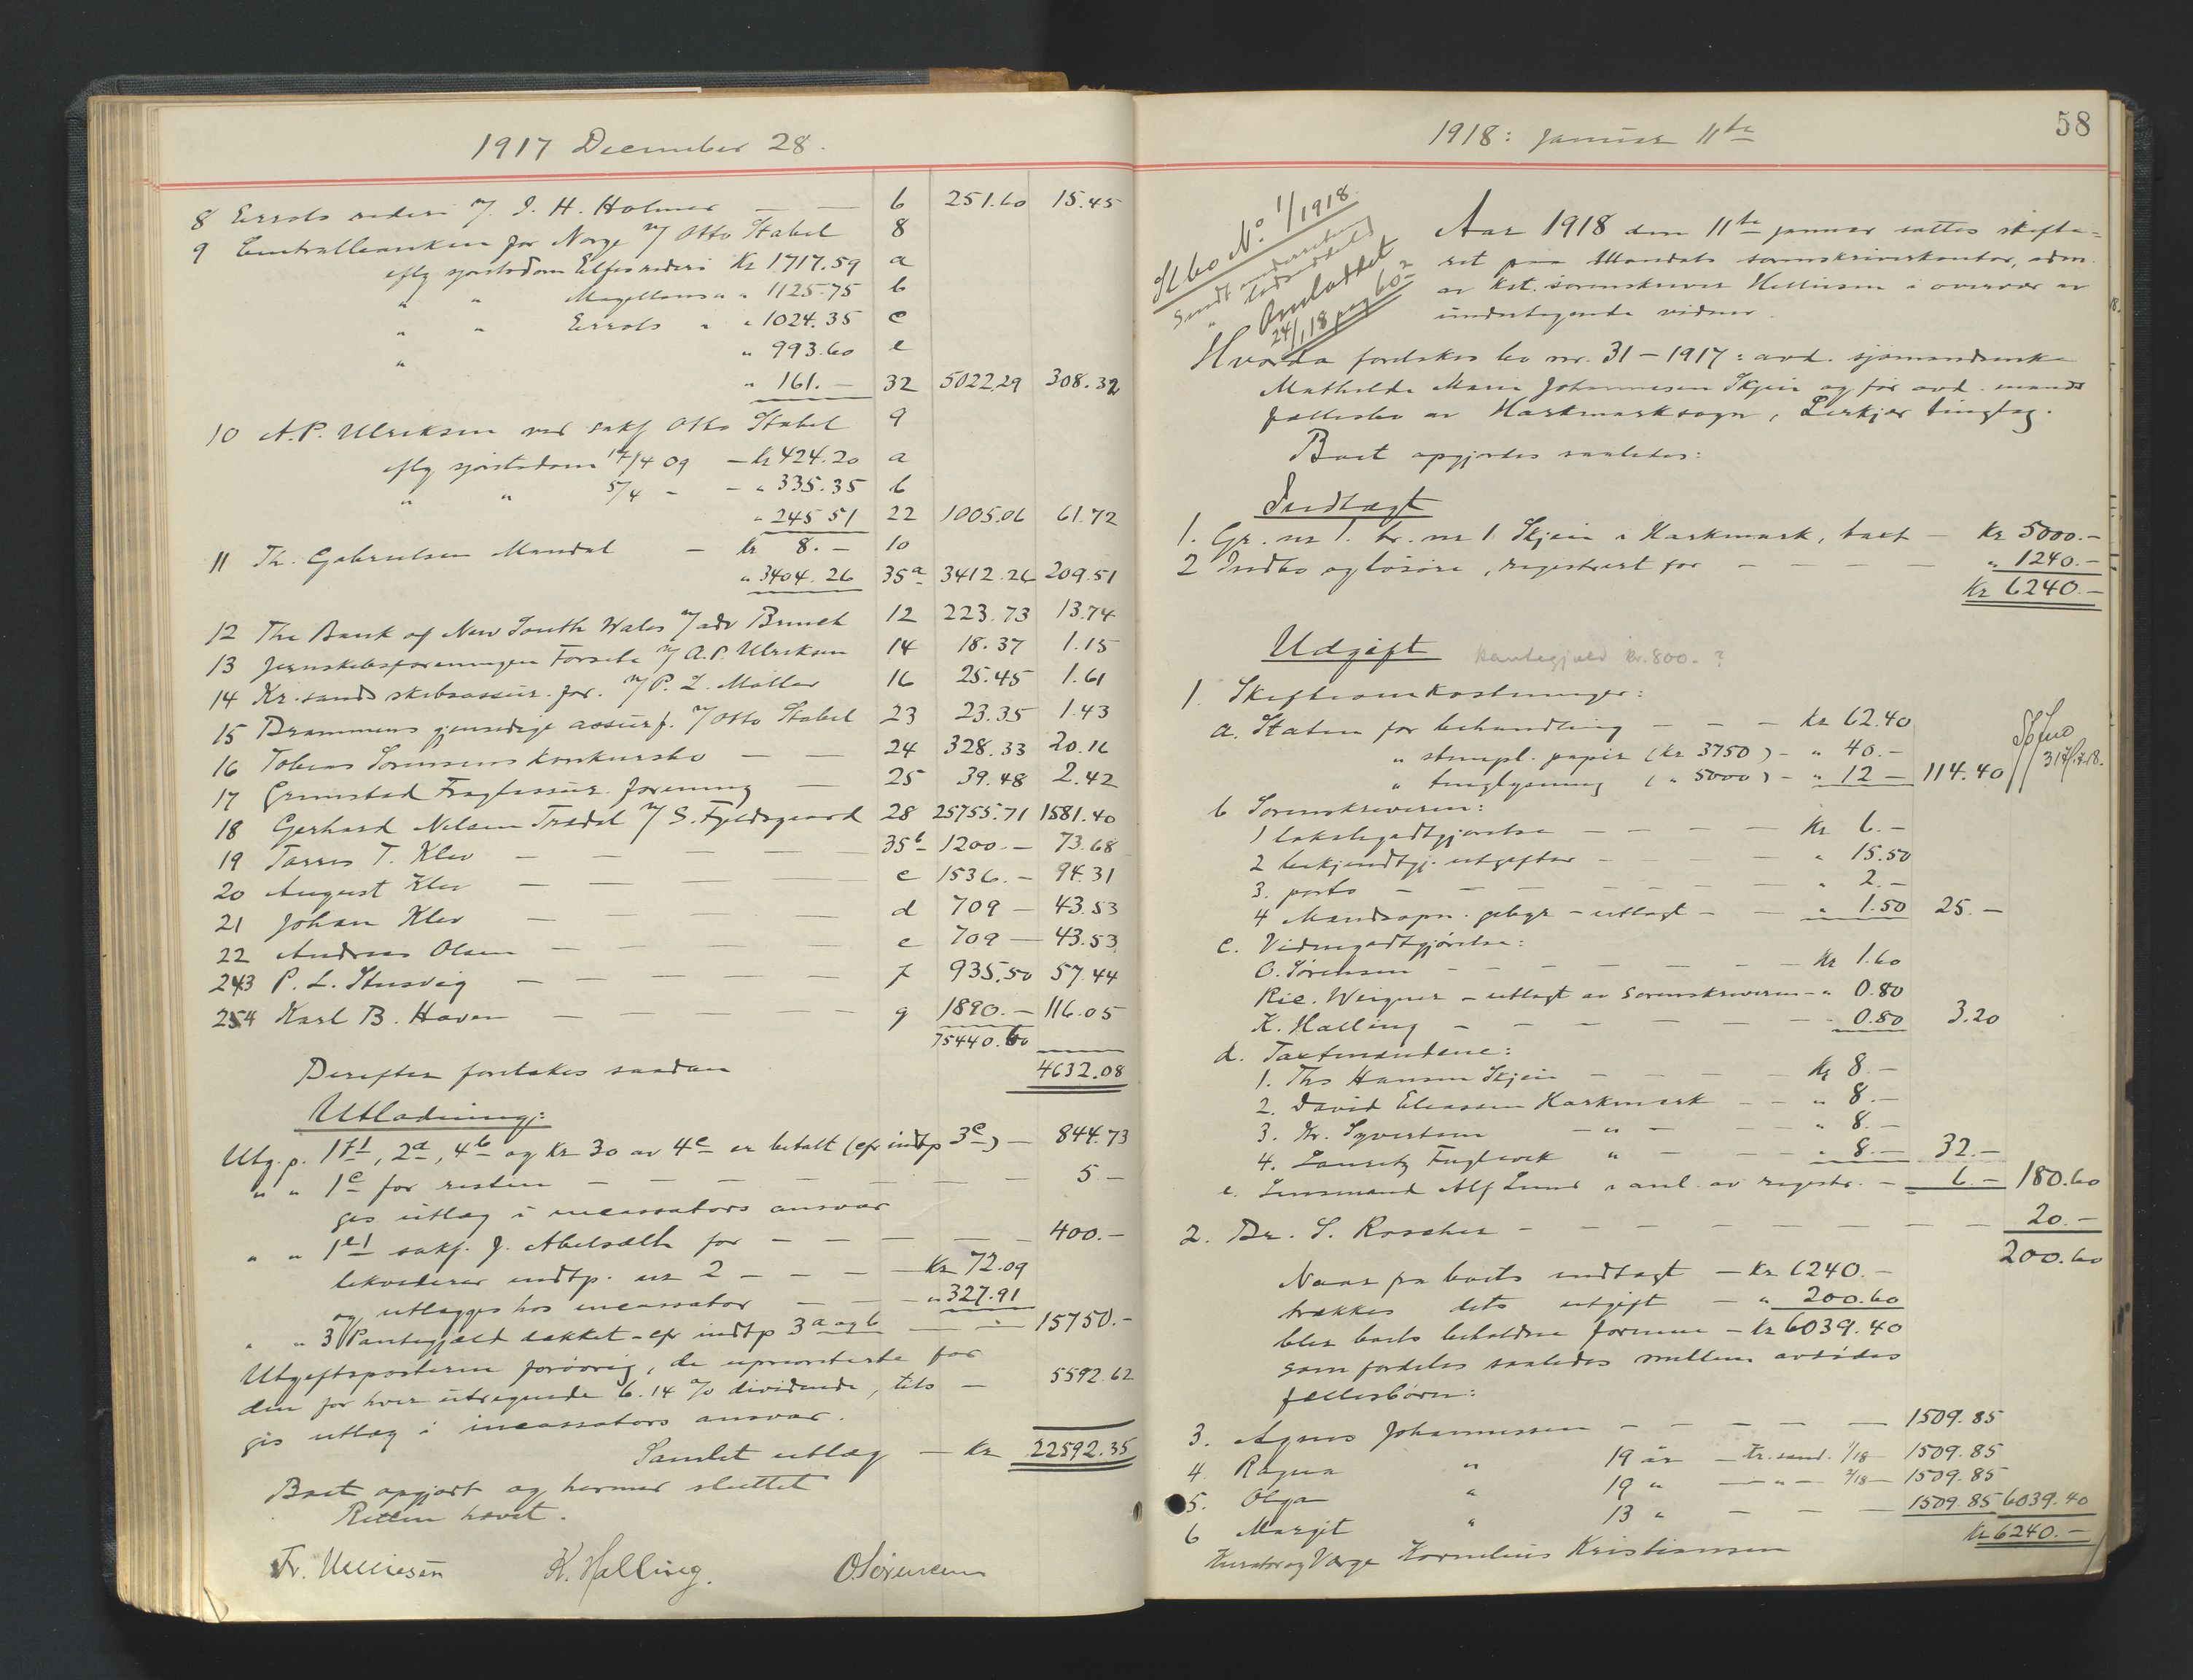 1917 December 28.
8 Errols rederi v/ J. H. Holmer — — 6 251.60 15.45
9 Centralbanken for Norge v/ Otto Stabel 8
iflg sjøretsdom Elfis rederi Kr 1717.59 a
" " Magellans " " 1125.75 b
" " Errols " " 1024.35 c
" " 993.60 e
" 161.— 32 5022.29 308.32
10 A.P. Ulriksen ved sakf Otto Stabel 9
iflg sjøretsdom 17/4 09 — kr 424.20 a
" " 5/4 - — " 335.35 b
" 245 51 22 1005.06 61.72
11 Th. Gabrielsen Mandal — Kr 8.— 10
" 3404.26 35a 3412.26 209.51
12 The Bank of New South Wales v/ adv Bruneh 12 223.73 13.74
13 Jernskibsforeningen Forsete v/ A.P. Ulriksen 14 18.37 1.15
14 Kr.sands skibsassur. for. v/ P. Z. Møller 16 25.45 1.61
15 Drammens gjensidige assurf. v/ Otto Stabel 23 23.35 1.43
16 Tobias Sørensens konkursbo — — 24 328.33 20.16
17 Grimstad Fragtassur. forening — 25 39.48 2.42
18 Gerhard Nilsen Tredal v/ S. Fjeldsgaard 28 25755.71 1581.40
19 Tarres T. Klev — — — — 35b 1200.— 73.68
20 August Klev — — — — c 1536.— 94.31
21 Johan Klev — — — — d 709 — 43.53
22 Andreas Olsen — — — — e 709 — 43.53
243 P. L. Stusvig — — — — f 935.50 57.44
254 Karl B. Haven — — — — g 1890.— 116.05
75440.60
Derefter foretokes saadan 4632.08
Utlodning:
Utg.p. 1 f 1, 2a, 4b og Kr 30 av 4c er betalt (cfr indtp 3c) — 844.73
" " 1c for resten — — — — — — 5 —
gis utlæg i incassators ansvar
" " 1e1 sakf. J. Abelsæth for — — — — 400.—
likviderer indtp. nr 2 — — — Kr 72.09
og utlægges hos incassator — — — " 327.91
" " 3 Pantegjæld dækket - cfr indtp 3a og b — — 15750.—
Utgiftsposterne forøvrig, de uprioriterte for
den for hver utregnede 6.14 % dividende, tils — 5592.62
gis utlæg i incassators ansvar.
Samlet utlæg — Kr 22592.35
Boet opgjort og hermed sluttet
Retten hævet.
K. Halling. O Sørensen
58
1918: Januar 11te
Skbo No 1/1918
Avsluttet
24/1 18 pag 60
Aar 1918 den 11te januar sattes skifte=
ret paa Mandals sorenskriverkontor, adm.
av kst. sorenskriver i overvær av
undertegnede vidner.
Hvorda foretokes bo nr. 31 – 1917: avd. sjømandsenke
Mathilde Marie Johannesen Skjein og før avd. mands
fællesbo av Harkmarksogn, tinglag.
Boet opgjordes saaledes:
Indtægt
1. Gr. nr 1. br. nr 1 Skjein i Harkmark, takst — Kr 5000.—
2 Indbo og løsøre, registrert for — — — — " 1240.—
Kr 6240.—
Udgift Pantegjæld kr. 800.- ?
1. Skifteomkostninger:
a. Staten for behandling — — — Kr 62.40
" stempl. papir (kr 3750) — " 40.—
" tinglysning ( " 5000) — " 12 — 114.40
b Sorenskriveren:
1 lokalgodtgjørelse — — — — Kr 6.—
2 bekjendtgj. utgifter — — — — " 15.50
3. porto — — — — — — " 2.—
4 Mandsopn. gebyr - utlagt — — " 1.50 25.—
c. Vidnegodtgjørelse:
O. Sørensen — — — — — — Kr 1.60
Ric. Weigner - utlagt av sorenskriveren — " 0.80
K. Halling — — — — — 0.80 3.20
d. Takstmændene:
1. Ths Hansen Skjein — — — Kr 8.—
2. David Eliassen Harkmark — — " 8.—
3. Kr. Syvertsen — " — — " 8.—
4. Lauritz Fuglevik " — — " 8.— 32.—
e. Lensmand Alf Lund i anl. av registr. — 6.— 180.60
2. Dr. S. Roscher — — — — — — 20.—
200.60
Naar fra boets indtægt — Kr 6240.—
trækkes dets utgift — " 200.60
blir boets beholdne formue — Kr 6039.40
som fordeles saaledes mellem avdødes
fællesbørn:
3. Agnes Johannessen — — — — — 1509.85
4. Ragna " 19 år — Kr.sand. 1/18 — 1509.85
5. Olga " 19 " — " — 2/18 — 1509.85
6 Margit " 13 " — — — 1509.85 6039.40
Kurator og Værge Kornelius Kristiansen Kr 6240.—